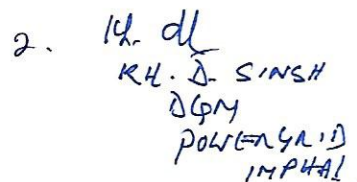 2. Kh. d
KH. D. SINGH
DGM
POWERGRID
IMPHAL